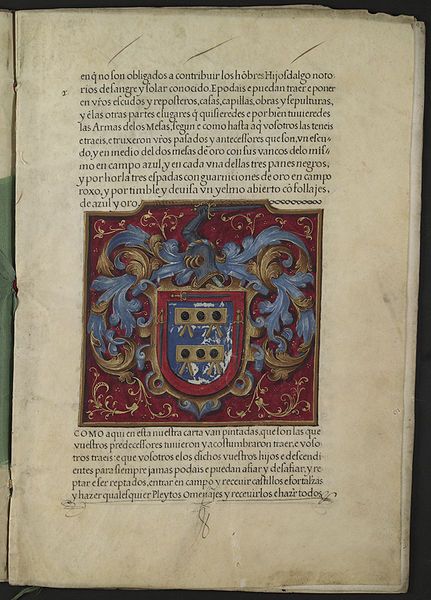 en q̃ no son obligados a contribuir los hõbres Hijosdalgo noto
rios de sangre y solar conocido. E podais e puedan traer e poner
en vr̃os escudos y reposteros, casas, capillas, obras y sepulturas,
y ẽlas otras partes e lugares q̃ quisieredes e por bien tuvieredes
las Armas delos Mesas, segun e como hasta aq̃ vosotros las teneis
e traeis, e truxeron vr̃os pasados y antecessores que son, vn escu
do, y en medio del dos mesas de oro con sus vancos delo mis
mo en campo azul, y en cada vna dellas tres panes negros,
y por horla tres espadas con guarniciones de oro en campo
roxo, y por timble y devisa vn yelmo abierto cõ follajes,
de azul y oro.
COMO aqui en esta nuestra carta van pintadas, que son las que
vuestros predecessores tuvieron y acostumbraron traer, e voso
tros traeis: e que vosotros e los dichos vuestros hijos e descendi
entes para siempre jamas podais e puedan afiar y desafiar, y re
ptar e ser reptados, entrar en campo y recevir castillos e fortalezas
y hazer qualesquier Pleytos Omenajes y recevirlos e hazer todos